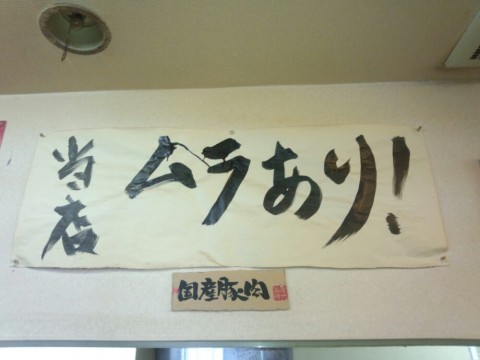 当店
ムラあり!
国産豚肉